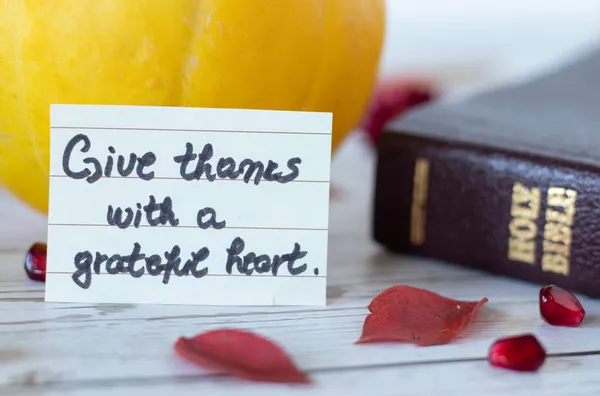 Give thanks
with a
grateful heart.
HOLY
BIBLE